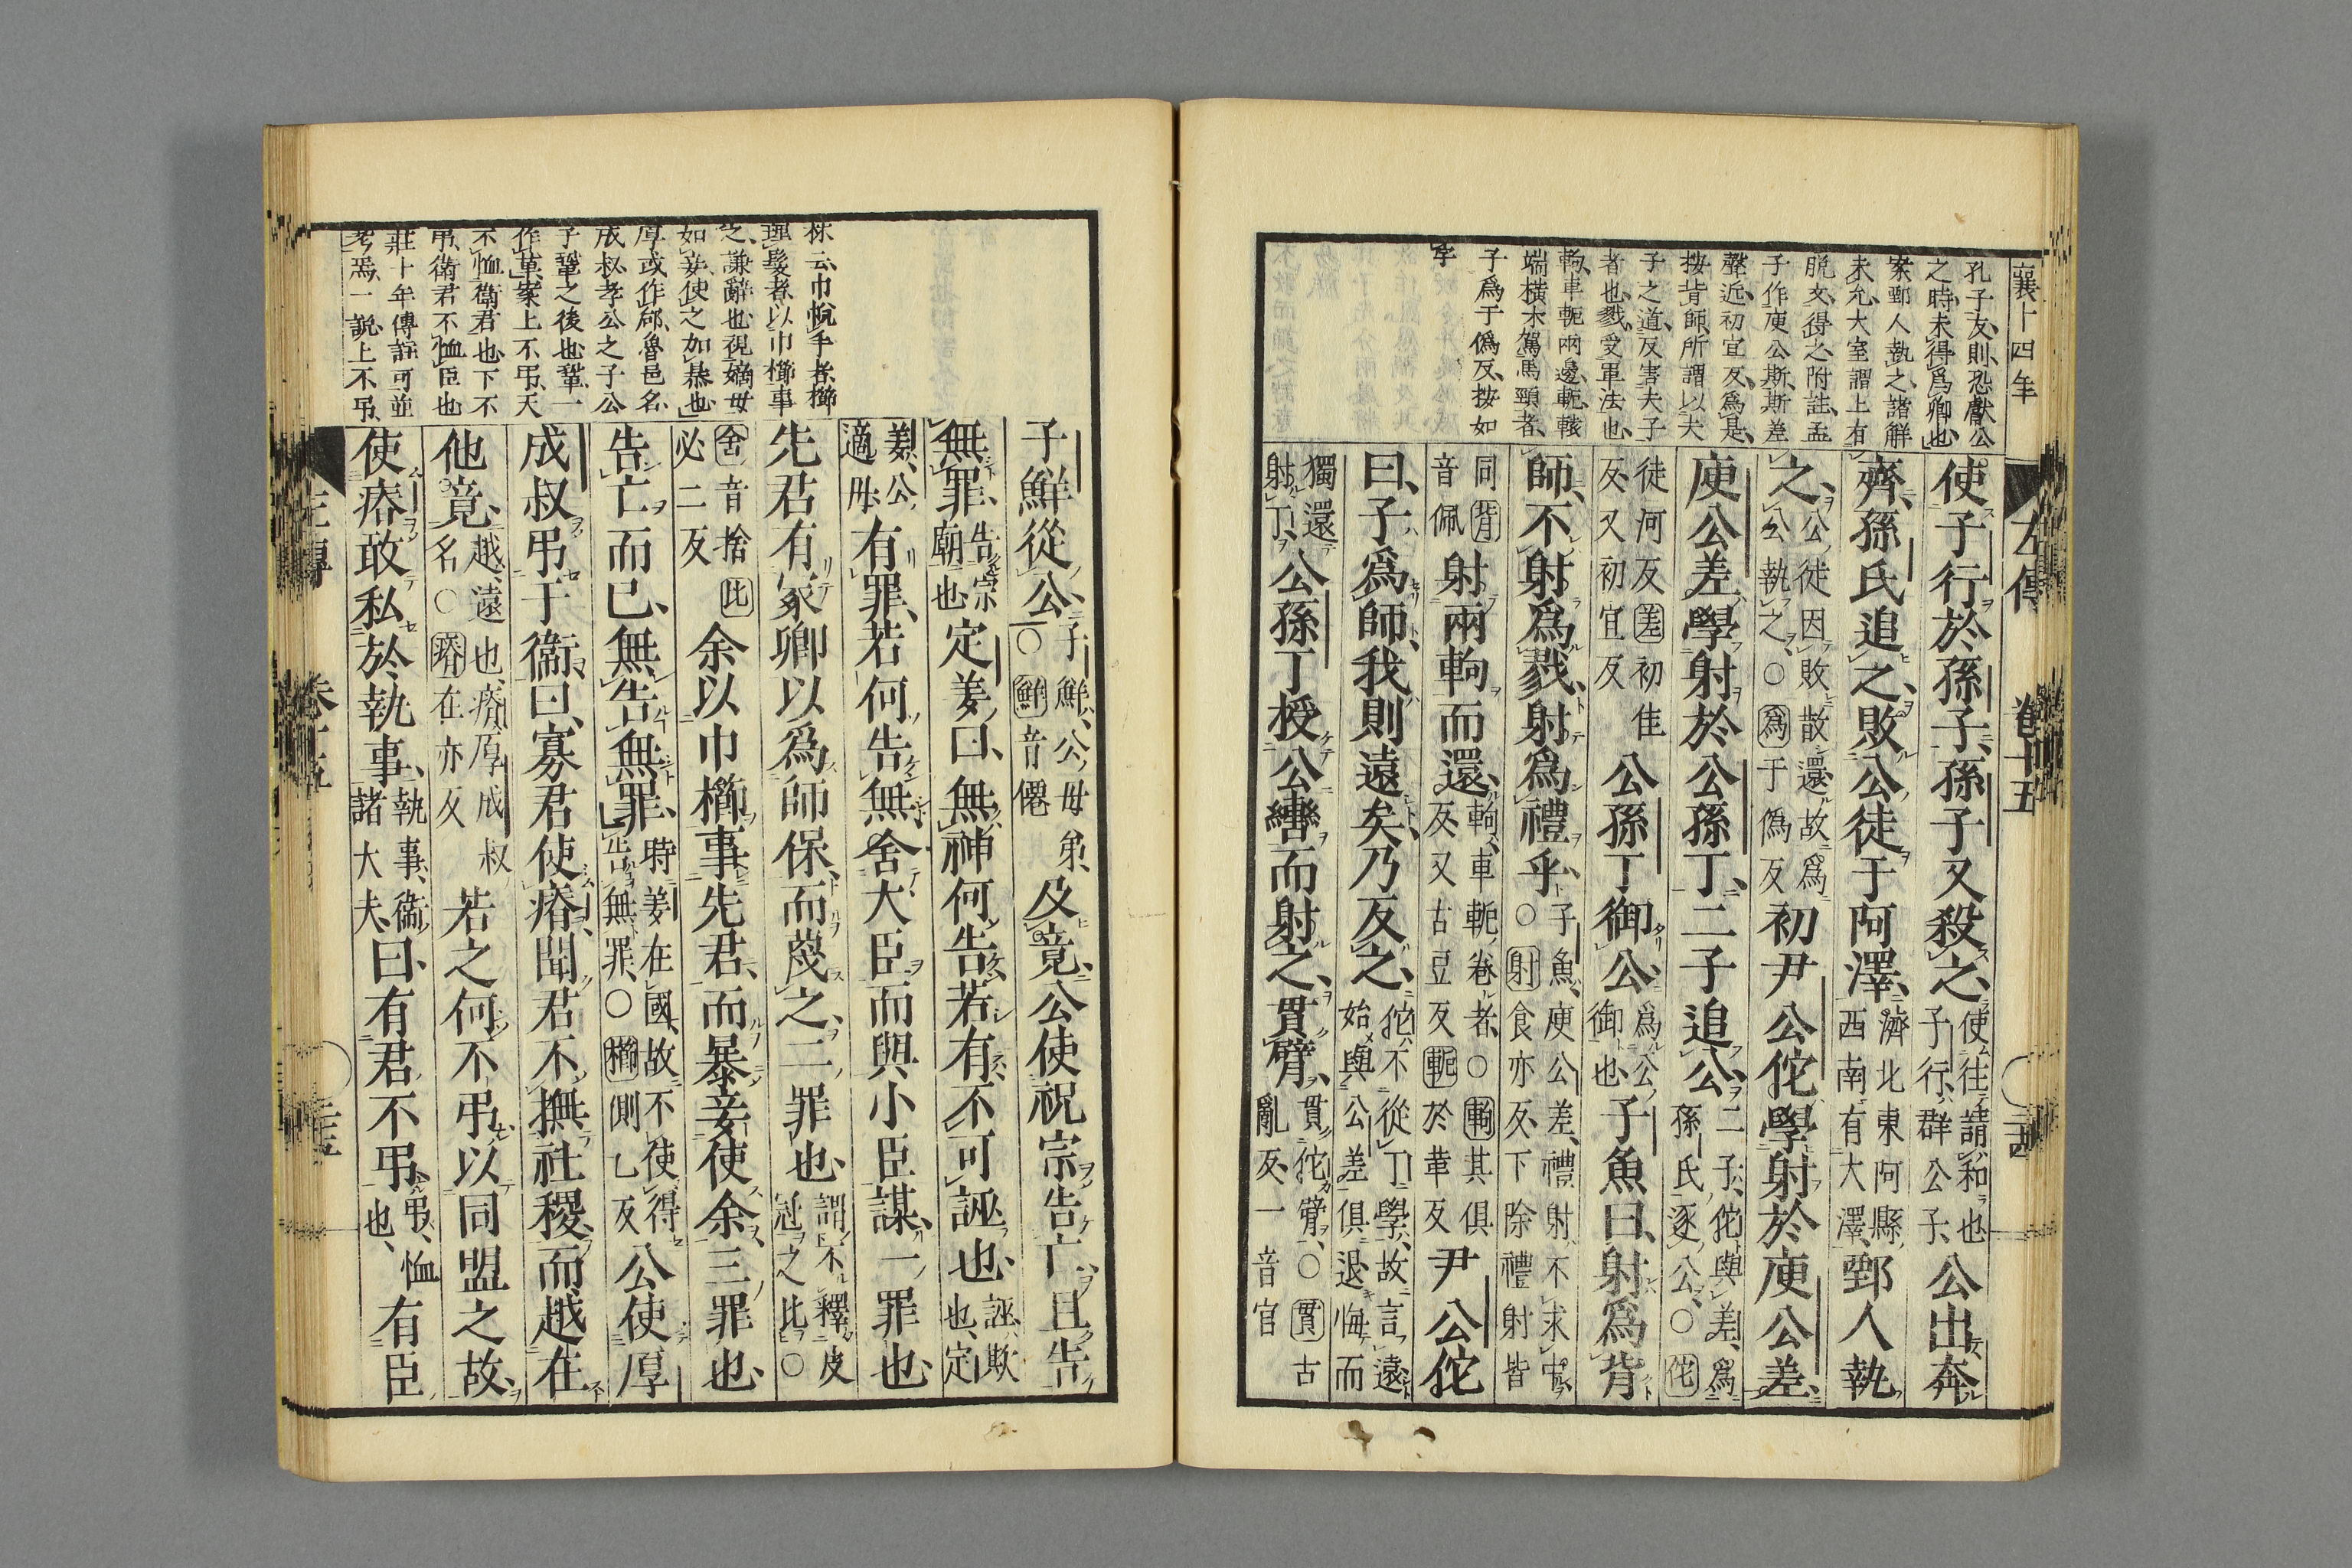 襄十四年
孔子友則恐獻公
之時未得爲卿也
案鄄人執之諸解
未允大室謂上有
脱文得之附註孟
子作庾公斯斯差
聲近初宜反爲是
按背師所謂以夫
子之道反害夫子
者也戮受軍法也
軥車軛兩邊軛軥
端橫木駕馬頸者
子爲于僞反按如
字
左傳 卷十五 二十四
使子行於孫子孫子又殺之使往請和也子行群公子公出奔
齊孫氏追之敗公徒于阿澤濟北東阿縣西南有大澤鄄人執
之公徒因敗散還故爲公執之○爲于僞反初尹公佗學射於庾公差
庾公差學射於公孫丁二子追公二子佗與差爲孫氏逐公○佗
徒河反差初佳反又初宜反公孫丁御公爲公御也子魚曰射爲背
師不射爲戮射爲禮乎子魚庾公差禮射不求中○射食亦反下除禮射皆
同背音佩射兩軥而還軥車軛卷者○軥其俱反又古豆反軛於革反尹公佗
曰子爲師我則遠矣乃反之佗不從丁學故言遠始與公差俱退悔而
獨還射丁公孫丁授公轡而射之貫臂貫佗臂○貫古亂反一音官
林云巾帨手者櫛
理髮者以巾櫛事
之謙辭也視嫡母
如妾使之如暴也
厚或作郈魯邑名
成叔孝公之子公
子鞏之後也鞏一
作革案上不弔天
不恤衛君也下不
弔衛君不恤臣也
莊十年傳註可並
考焉一説上不弔
子鮮從公子鮮公母弟○鮮音僊及竟公使祝宗告亡且告
無罪告宗廟也定姜曰無神何告若有不可誣也誣欺也定
姜公適母有罪若何告無舍大臣而與小臣謀一罪也
先君有冢卿以爲師保而蔑之二罪也謂不釋皮冠之比○
舍音捨比必二反余以巾櫛事先君而暴妾使余三罪也
告亡而已無告無罪時姜在國故不使得告無罪○櫛側乙反公使厚
成叔弔于衛曰寡君使瘠聞君不撫社稷而越在
他竟越遠也瘠厚成叔名○瘠在亦反若之何不弔以同盟之故
使瘠敢私於執事執事衛諸大夫曰有君不弔弔恤也有臣